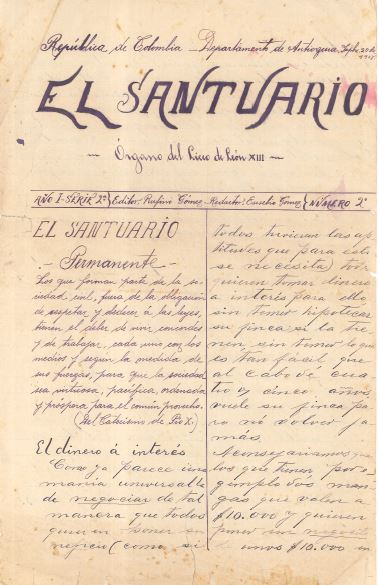 República de Colombia - Departamento de Antioquia, Septe. 30 de
EL SANTUARIO
- Órgano del Liceo de León XIII -
AÑO I - SERIE 2ª } Editor, Rufino Gómez - Redactor: Eusebio Gómez { NÚMERO 2º
EL SANTUARIO
- Permanente -
Los que forman parte de la so-
ciedad civil, fuera de la obligación
de respetar y obedecer á las leyes,
tienen el deber de vivir concordes
y de trabajar, cada uno con los
medios y según la medida de
sus fuerzas, para que la sociedad
sea virtuosa, pacífica, ordenada
y próspera para el común provecho.
(Del Catecismo de Pío X.)
El dinero á interés
Como ya parece una
manía universal la
de negociar de tal
manera que todos
quieren poner un
negocio (como si
todos tuvieran las ap-
titudes que para esto
se necesita)
quieren tomar dinero
á interés para ello
sin temor hipotecar
su finca si la tie-
nen, sin temor lo que
es tan fácil que
al cabo de cua-
tro y cinco años
vuele su finca pa-
ra no volver ja-
más.
Aconsejaríamos que
los que tienen por e-
jemplo dos man-
gas que valen á
$10.000 y quieren
poner un negocio
de unos $10.000 en